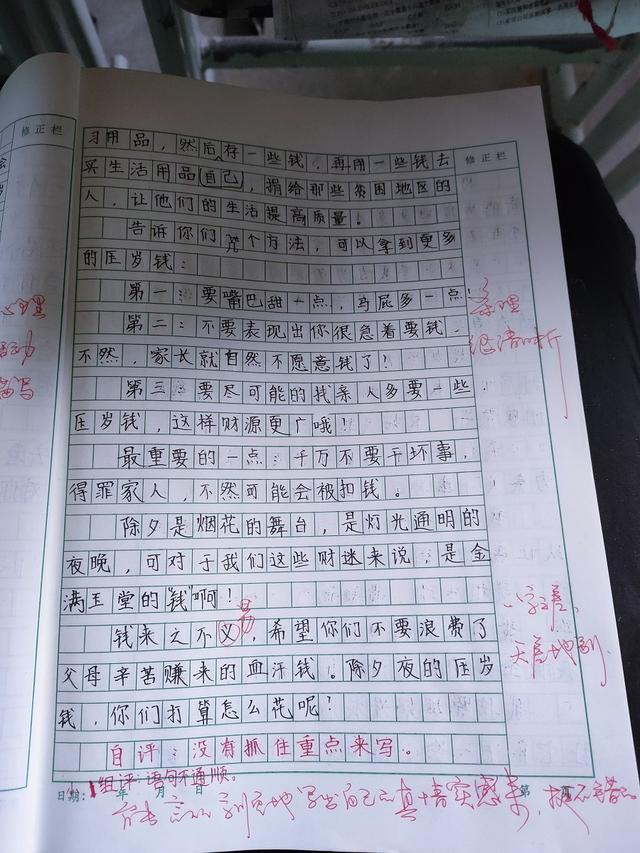 修正栏
习用品，然后存一些钱，再用一些钱去
买生活用品自己，捐给那些贫困地区的
人，让他们的生活提高质量。
告诉你们几个方法，可以拿到更多
的压岁钱：
第一：要嘴巴甜一点，马屁多一点！
第二：不要表现出你很急着要钱，
不然，家长就自然不愿意钱了！
第三：要尽可能的找亲人多要一些
压岁钱，这样财源更广哦！
最重要的一点：千万不要干坏事，
得罪家人，不然可能会被扣钱。
除夕是烟花的舞台，是灯光通明的
夜晚，可对于我们这些财迷来说，是金
满玉堂的"钱"啊！
钱来之不义，希望你们不要浪费了
易
父母辛苦赚来的血汗钱。除夕夜的压岁
钱，你们打算怎么花呢？
自评：没有抓住重点来写。
组评：语句不通顺。
日期： 年 月 日
第
修正栏
条理
很清晰
一字之差，
天差地别
心理
活动
描写
写出自己的真情实感来，挺不错的